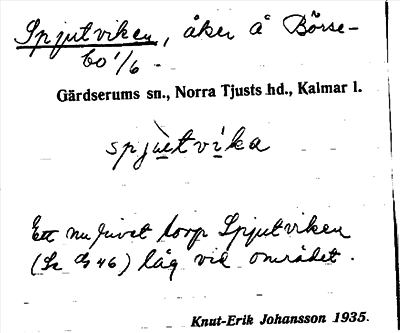 Spjutviken, åker å Börse-
bo 1/6 -
Gärdserums sn., Norra Tjusts hd., Kalmar l.
spjùtvíka
Ett nu rivet torp Spjutviken
låg vid området.
Knut-Erik Johansson 1935.